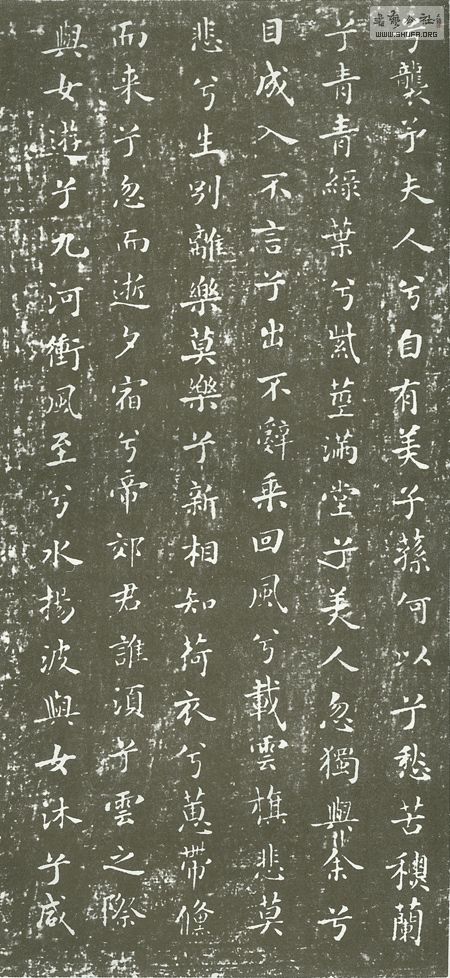 WWW.SHUFA.ORG
兮襲予夫人兮自有美子蓀何以兮愁苦蘭
兮青青綠葉兮紫莖滿堂兮美人忽獨與余兮
目成入不言兮出不辭乘回風兮載雲旗悲莫
悲兮生别離樂莫樂兮新相知荷衣兮蕙帶儵
而来兮忽而逝夕宿兮帝郊君誰須兮雲之際
與女遊兮九河衝風至兮水揚波與女沐兮咸